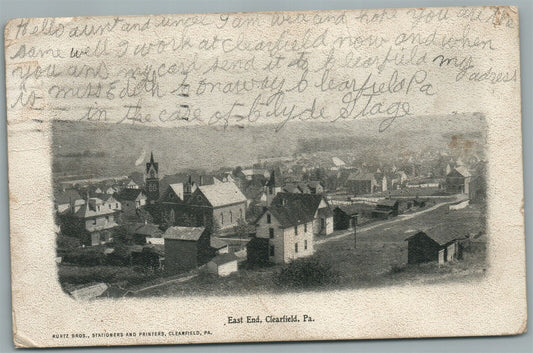 Hello aunt and uncle I am well and hope you are the
same well I work at Clearfield now and when
you ans my card send it to Clearfield Pa my adress
is miss Edith Clearfield Pa
in the care of Clyde Stage
East End, Clearfield, Pa.
KURTZ BROS., STATIONERS AND PRINTERS, CLEARFIELD, PA.